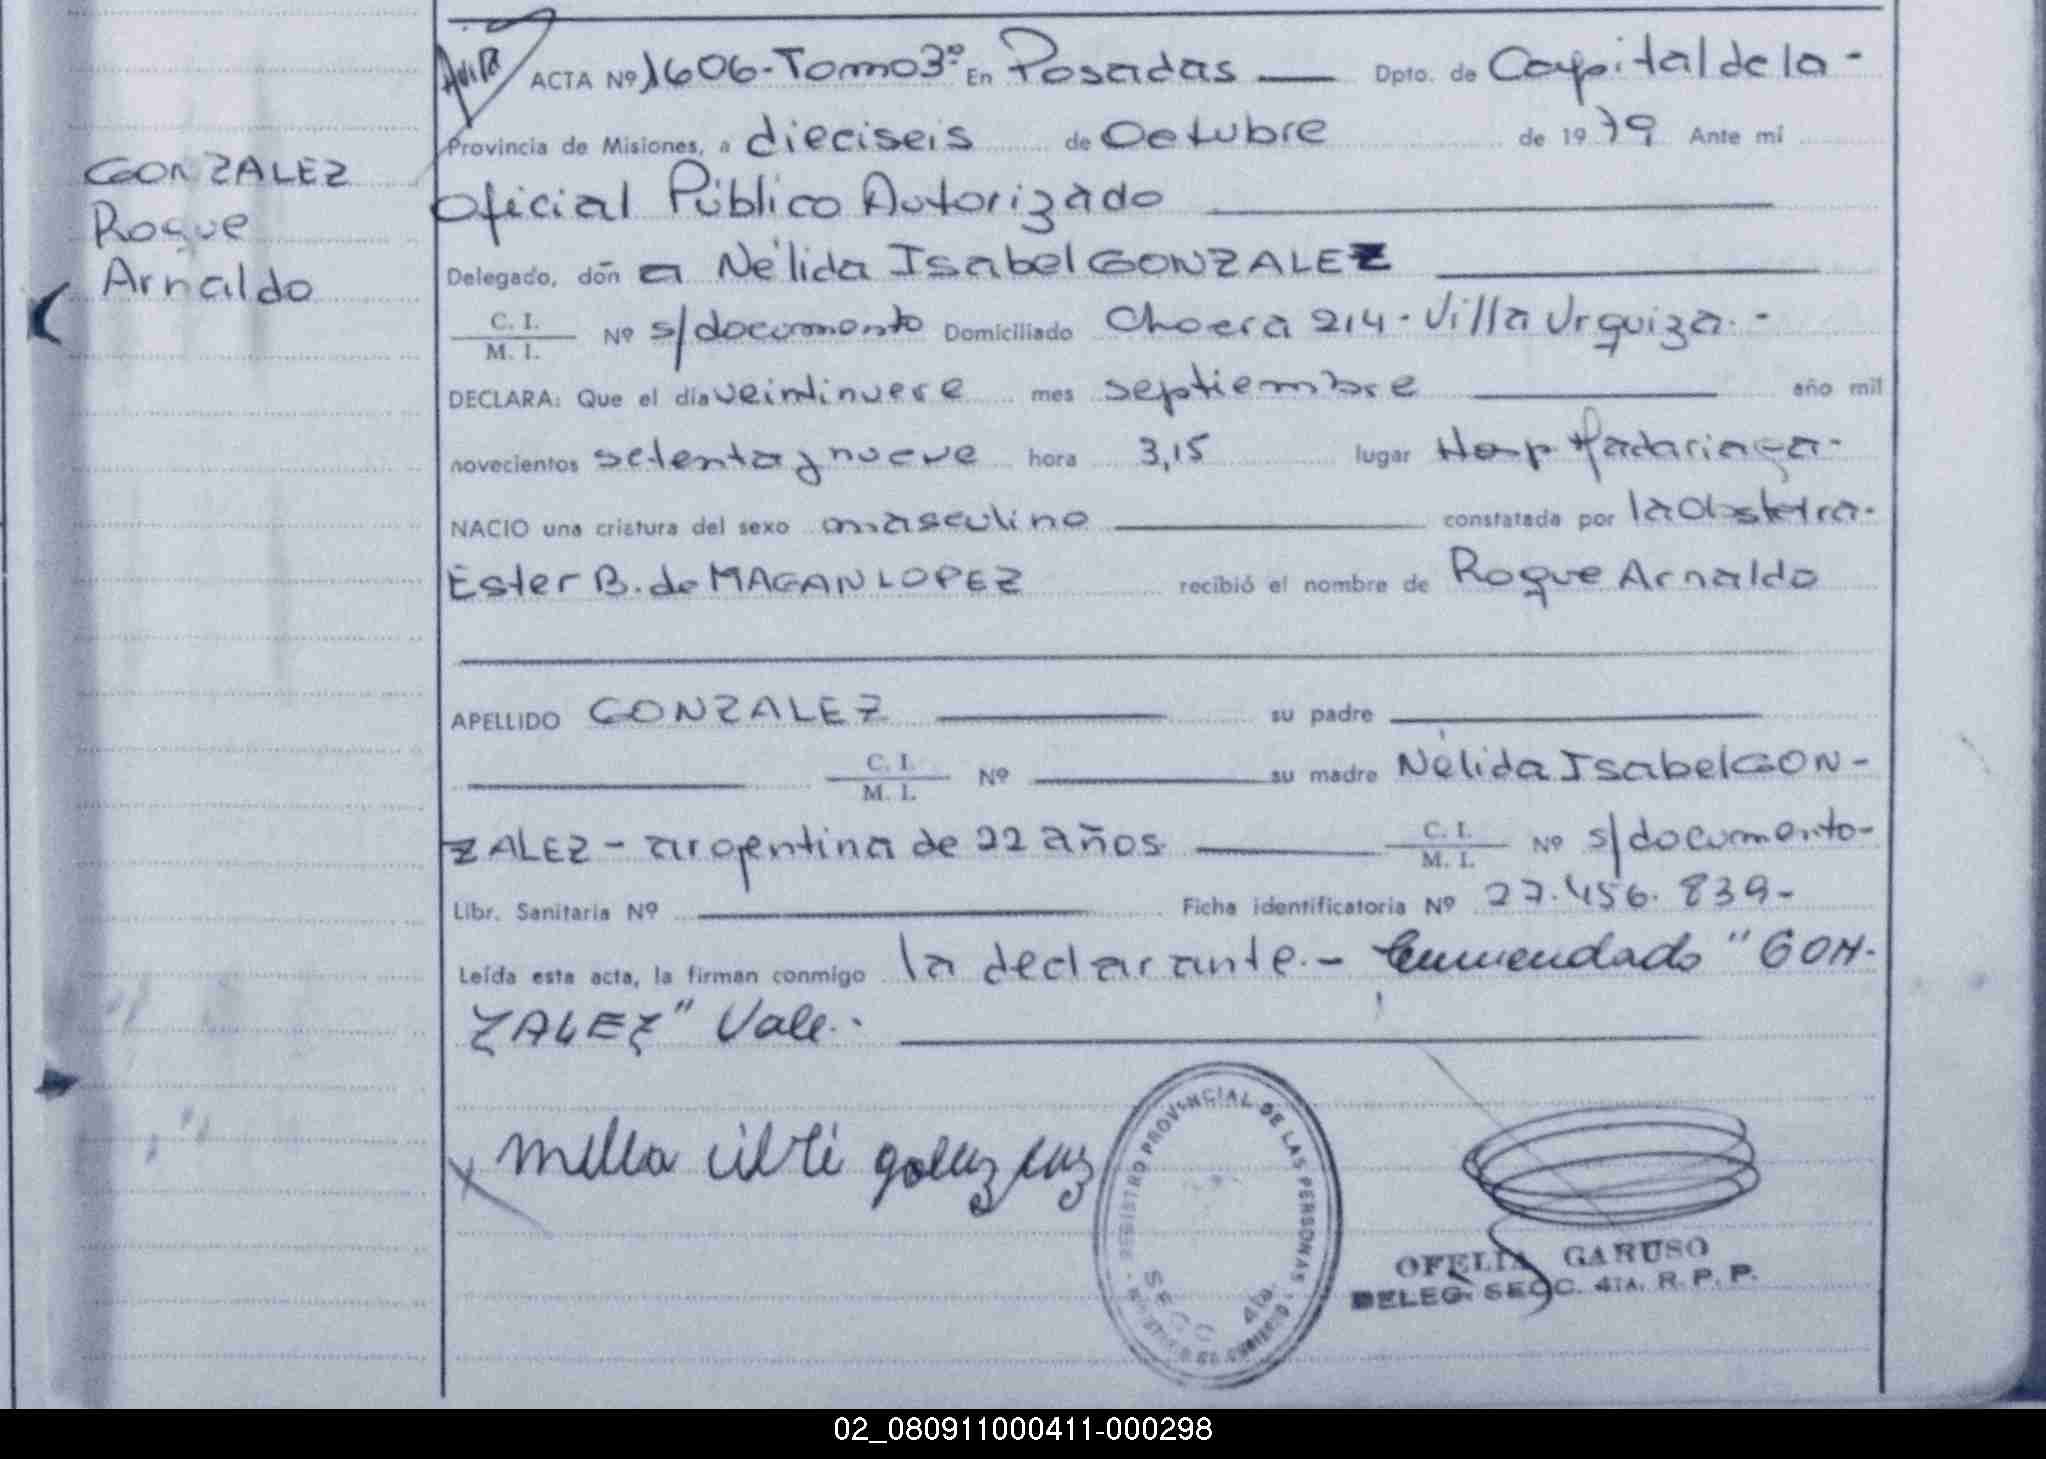 GONZALEZ
Roque
Arnaldo
ACTA Nº 1606-Tomo 3º En Posadas Dpto. de Capital de la-
Provincia de Misiones, a dieciseis de Octubre de 1979 Ante mi
Oficial Público Autorizado
Delegado, don a Nélida Isabel GONZALEZ
C. I.
M. I. Nº s/documento Domiciliado 214-Villa Urquiza.-
DECLARA: Que el día veintinueve mes septiembre año mil
novecientos setenta y nueve hora 3,15 lugar Hosp Madariaga-
NACIO una criatura del sexo masculino constatada por la Obstetra-
Ester B. de MAGAN LOPEZ recibió el nombre de Roque Arnaldo
APELLIDO GONZALEZ su padre
C. I.
M. I. Nº su madre Nélida Isabel GON-
ZALEZ- argentina de 22 años C. I.
M. I. Nº s/documento-
Libr. Sanitaria Nº Ficha identificatoria Nº 27.456.839-
Leída esta acta, la firman conmigo la declarante.- Enmendado "GON-
ZALEZ" Vale.-
REGISTRO PROVINCIAL DE LAS PERSONAS
SECC 4ta.
OFELIA GARUSO
DELEG. SECC. 4TA. R. P. P.
02_080911000411-000298